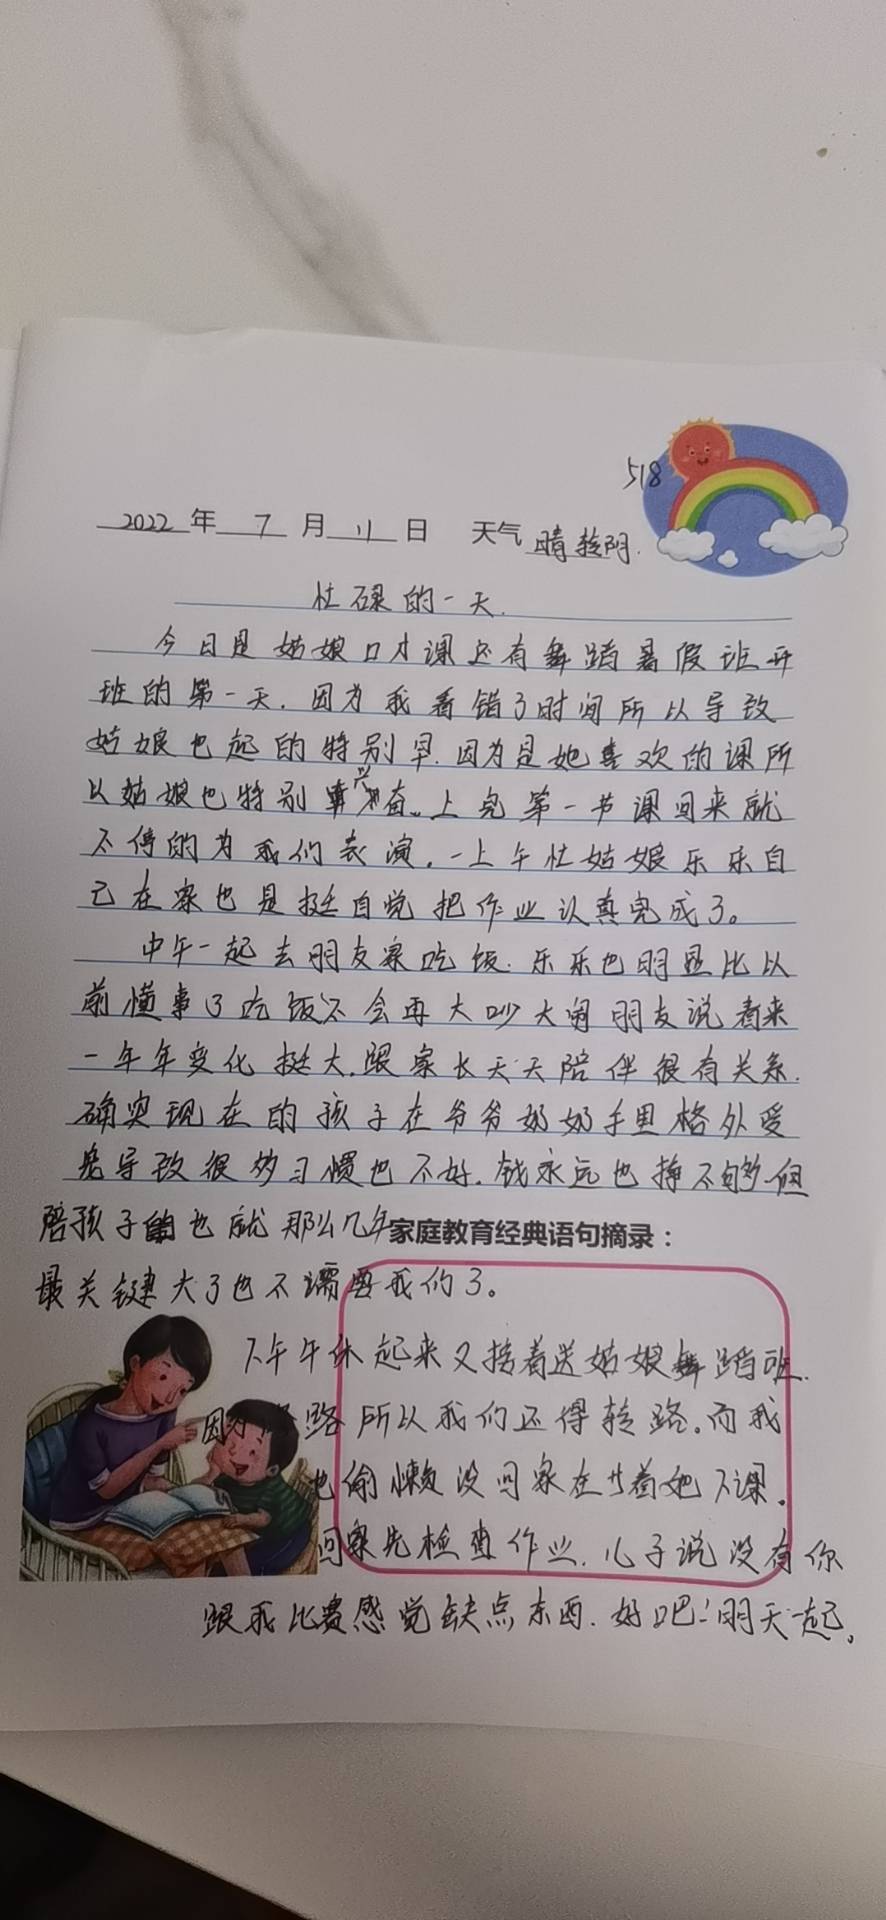 518
2022年7月11日 天气晴转阴.
忙碌的一天.
今日是姑娘口才课还有舞蹈暑假班开
班的第一天.因为我看错了时间所以导致
姑娘也起的特别早.因为是她喜欢的课所
以姑娘也特别兴奋。上完第一节课回来就
不停的为我们表演.一上午忙姑娘乐乐自
己在家也是挺自觉把作业认真完成了。
中午一起去朋友家吃饭.乐乐也明显比以
前懂事了吃饭不会再大吵大闹朋友说看来
一年年变化挺大.跟家长天天陪伴很有关系.
确实现在的孩子在爷爷奶奶手里格外受
宠导致很多习惯也不好.钱永远也挣不够但
陪孩子的也就那么几年家庭教育经典语句摘录：
最关键大了也不需要我们了。
下午午休起来又接着送姑娘舞蹈班.
因为路所以我们还得转路.而我
也偷懒没回家在等着她下课.
回家先检查作业.儿子说没有你
跟我比赛感觉缺点东西.好吧!明天一起。